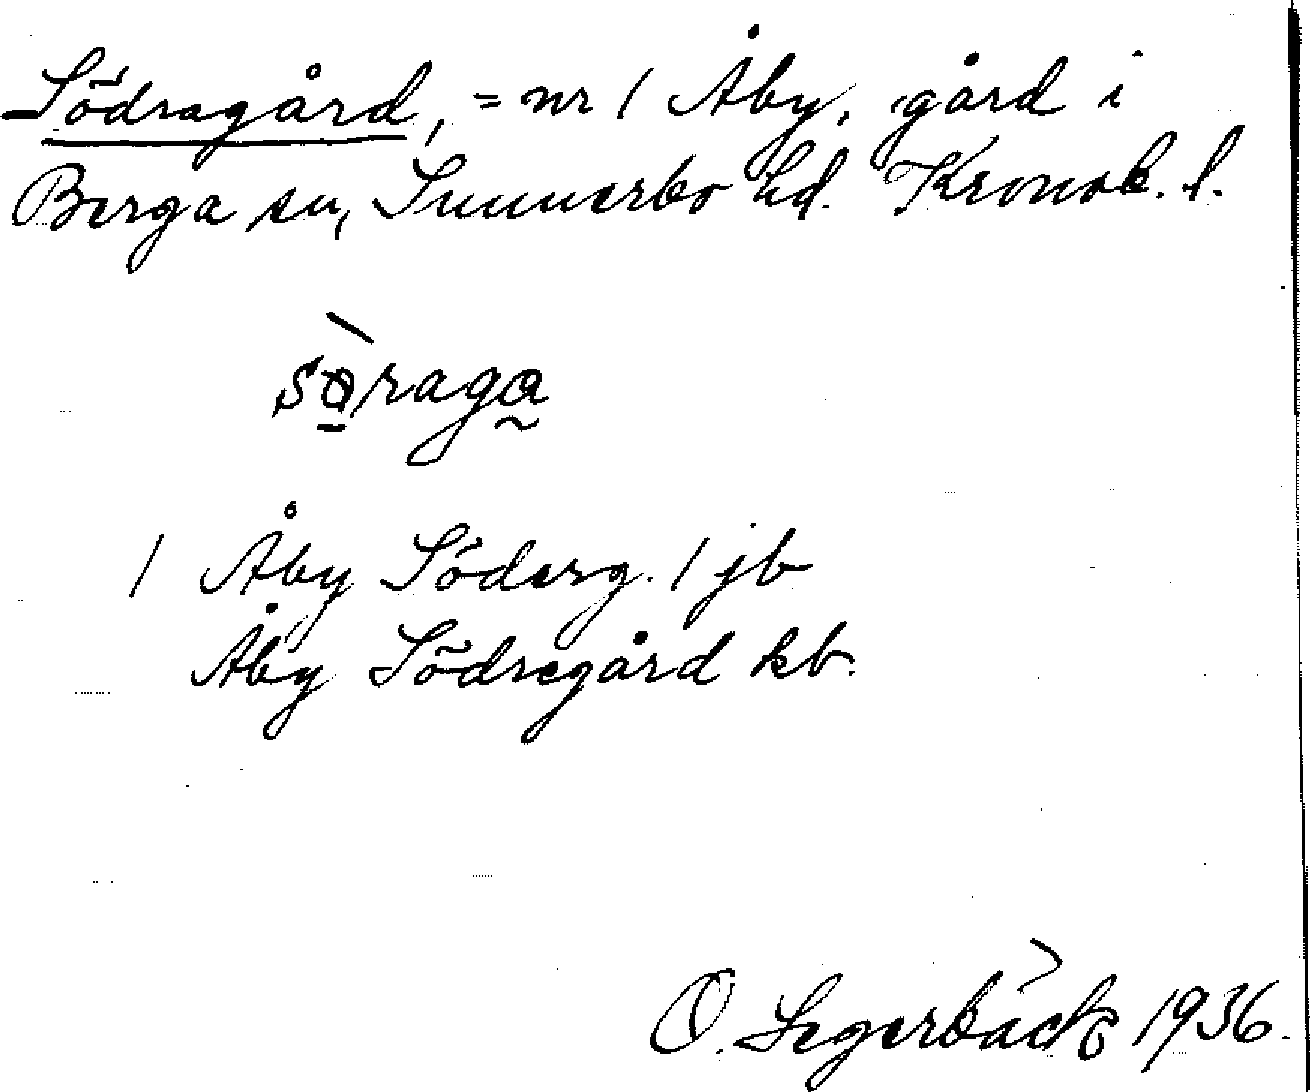 Södragård, = nr 1 Åby, gård i
Berga sn, Sunnerbo hd. Kronob. l.
søraga
1 Åby Söderg. 1 jb
Åby Södregård kb.
O. Segerbäck 1936.